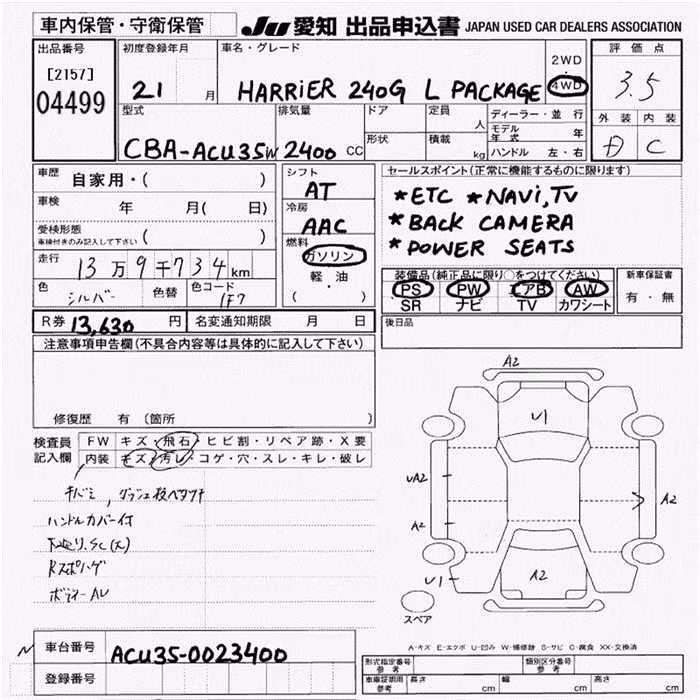 車内保管・守衛保管 JU 愛知 出品申込書 JAPAN USED CAR DEALERS ASSOCIATION
出品番号 初度登録年月 車名・グレード 2WD 評価点
[2157] 21 月 HARRIER 240G L PACKAGE 4WD 3.5
04499
型式 排気量 ドア 定員 人 ディーラー・並行 外装 内装
CBA-ACU35W 2400 CC 形状 積載 kg モデル年式 年 D C
ハンドル 左・右
車歴 自家用・( ) シフト セールスポイント(正常に機能するものに限ります)
AT
車検 年 月( 日) 冷房 *ETC *NAVI,TV
AAC *BACK CAMERA
受検形態 ( ) 燃料 *POWER SEATS
車検付きのみ記入して下さい ガソリン
走行 13万9千734km 軽・油 装備品(純正品に限り○をつけてください) 新車保証書
( ) PS PW エアB AW 有・無
色 シルバー 色替 色コード 1F7 SR ナビ TV カワシート
R券 13,630 円 名変通知期限 月 日 後日品
注意事項申告欄(不具合内容等は具体的に記入して下さい)
修復歴 有 (箇所 )
検査員 FW キズ・飛石・ヒビ割・リペア跡・X要
記入欄 内装 キズ・汚レ・コゲ・穴・スレ・キレ・破レ
ハンドルカバー付
A2
U1
UA2
A2
A2
A2
U1
スペア
A-キズ E-エクボ U-凹み W-補修跡 S-サビ C-腐食 XX-交換済
車台番号 ACU35-0023400
登録番号
形式指定番号 参考 類別区分番号 参考
車庫証明用 参考 長さ cm 幅 cm 高さ cm